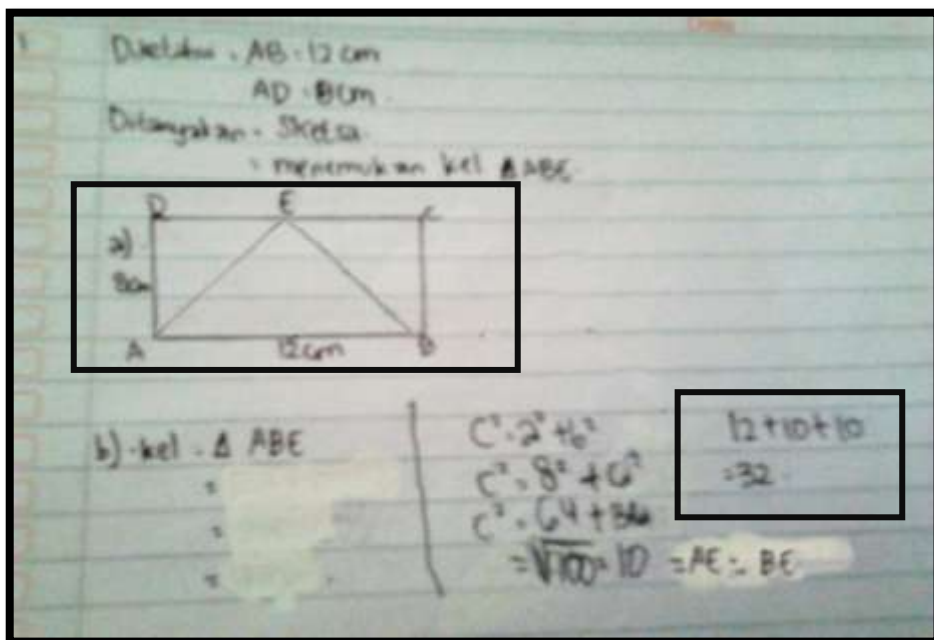 1 Diketahui = AB = 12 cm
AD = 8cm.
Ditanyakan = Sketsa.
= menemukan kel Δ ABE.
D E C
a)
8cm
A 12cm B
b) kel = Δ ABE
=
=
=
C² = 2² + 6²
C² = 8² + 6²
C² = 64 + 36
= √100 = 10 = AE = BE
12 + 10 + 10
= 32.